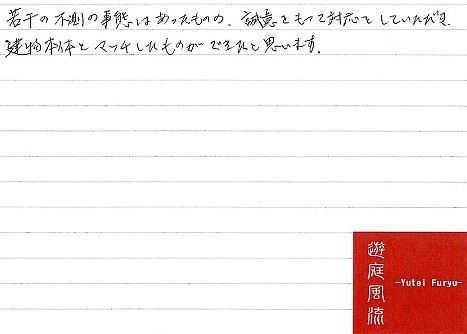 若干の不測の事態はあったものの、誠意をもって対応をしていただき、
建物本体とマッチしたものができたと思います。
遊庭風流
-Yutei Furyu-